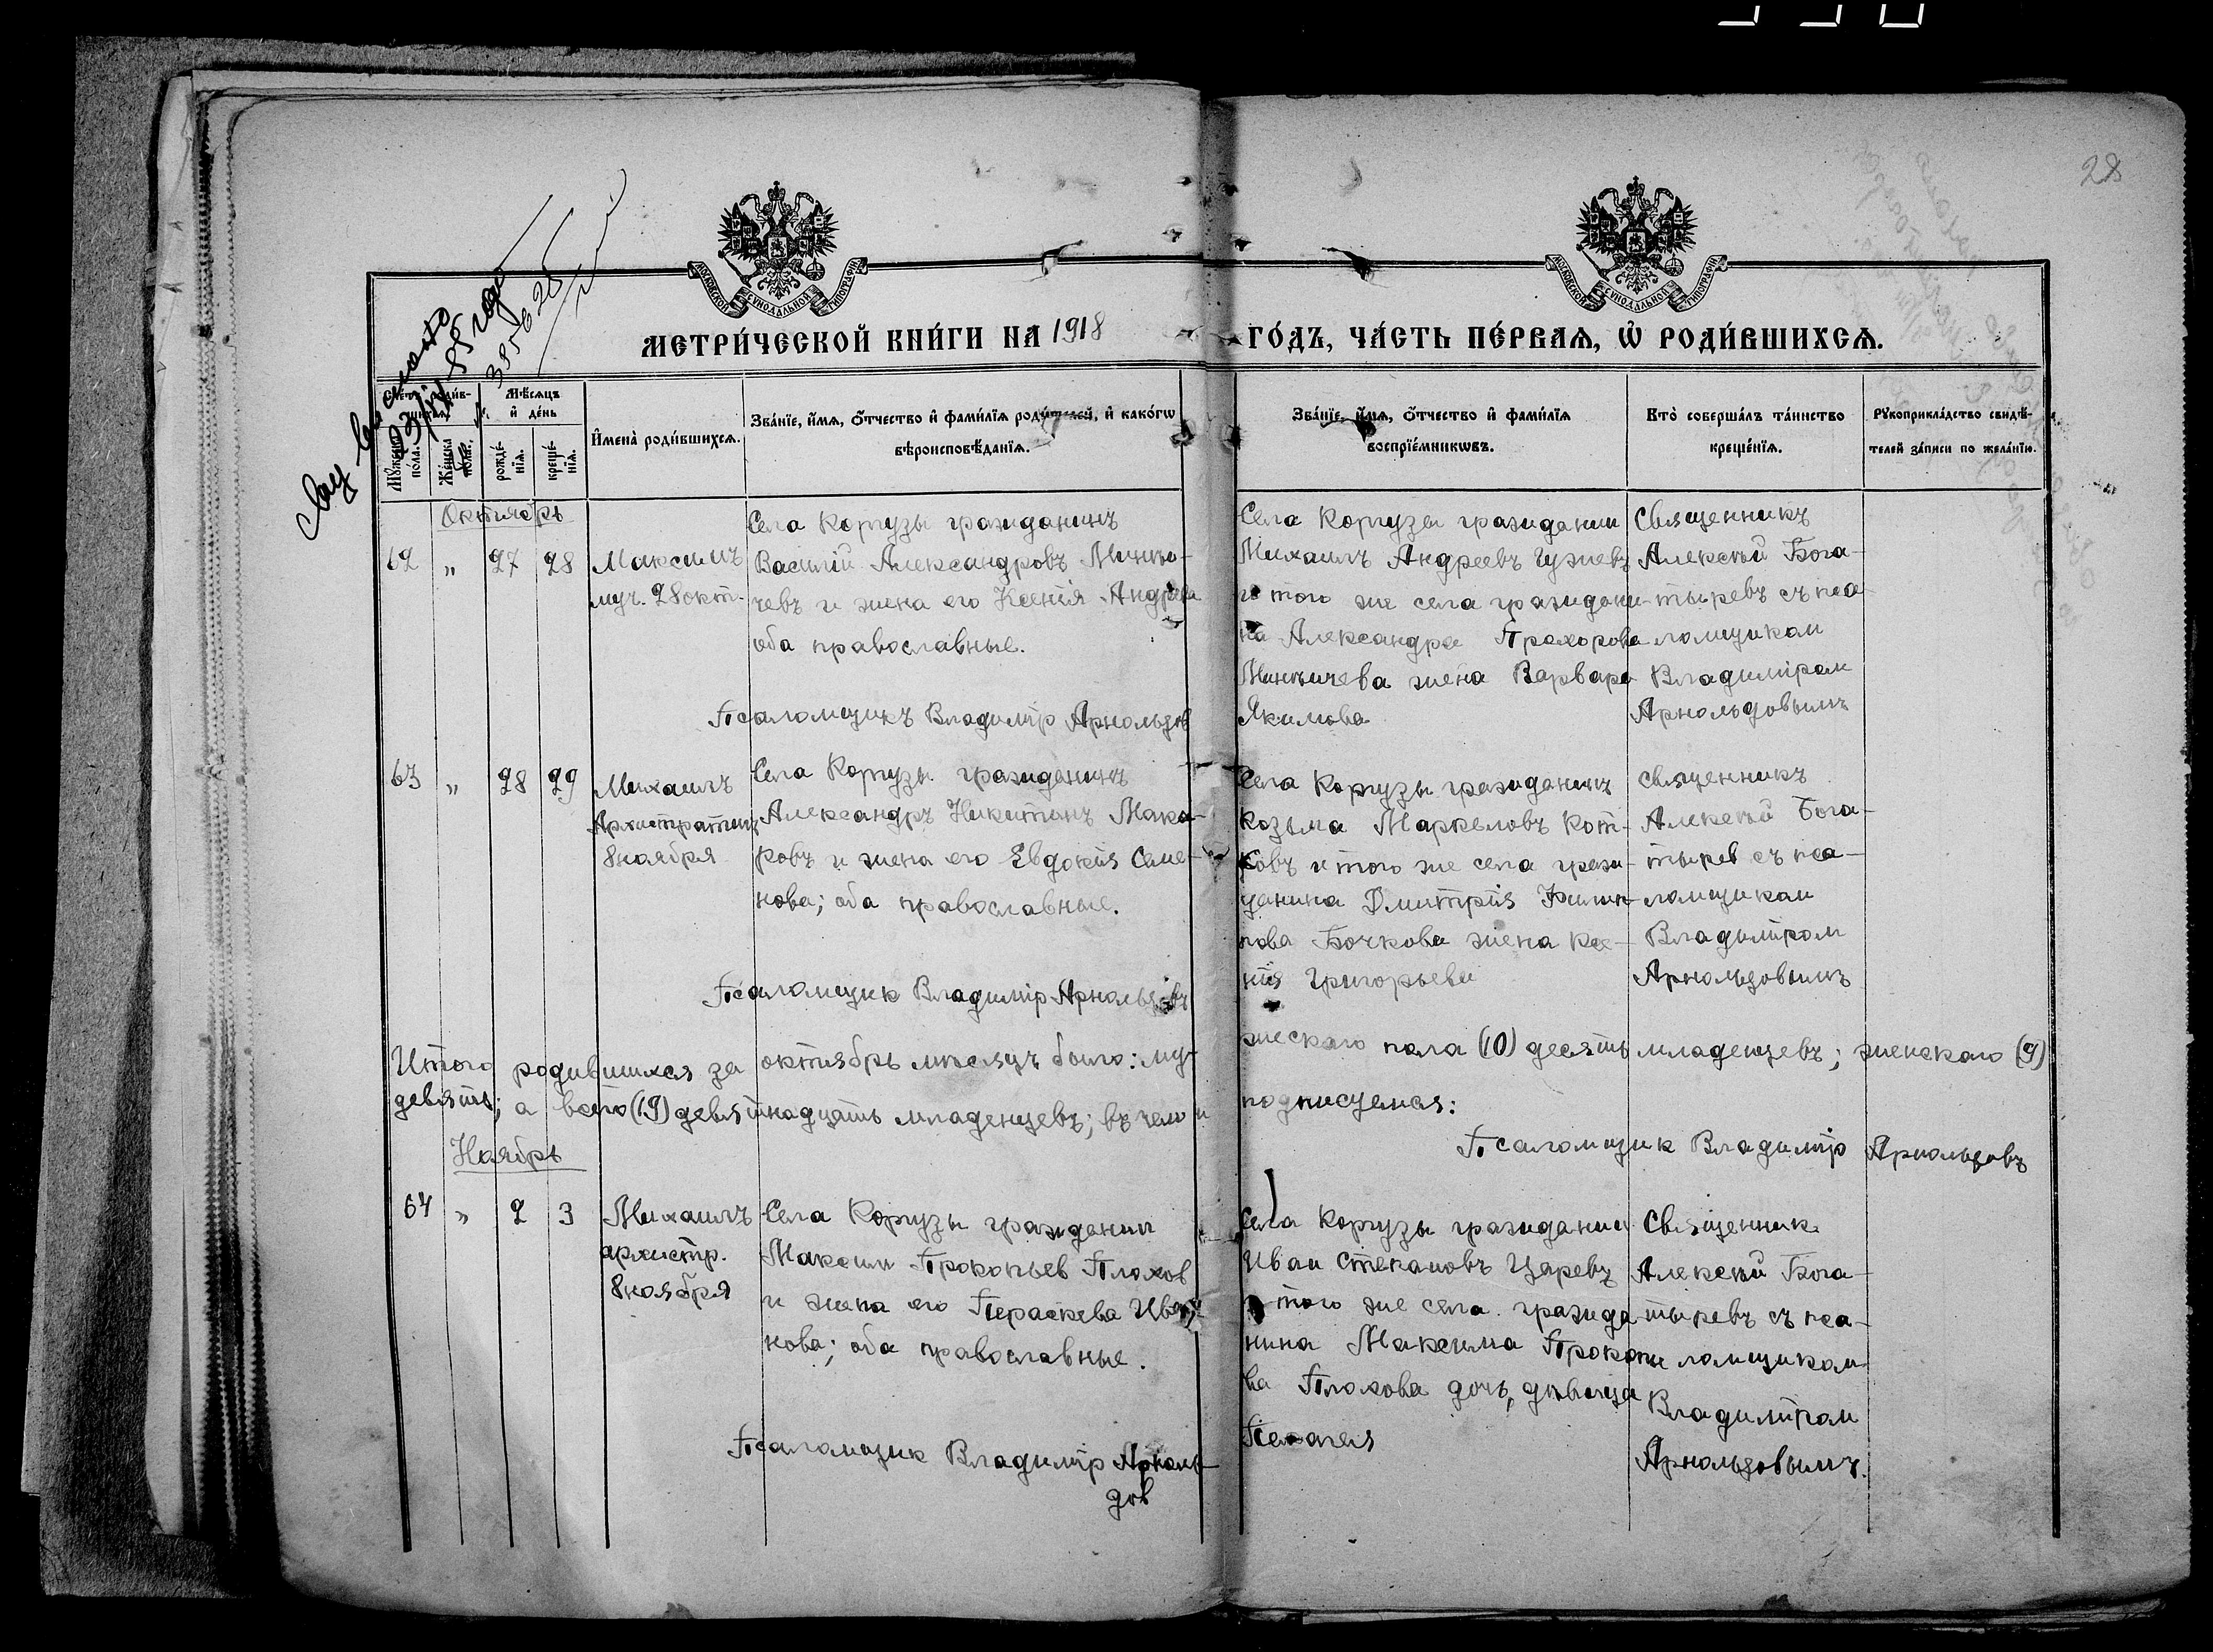 28
МОСКОВСКОЙ СУНОДАЛЬНОЙ ТИПОГРАФІИ
МОСКОВСКОЙ СУНОДАЛЬНОЙ ТИПОГРАФІИ
МЕТРИ́ЧЕСКОЙ КНИ́ГИ НА 1918
ГО́ДЪ, ЧА́СТЬ ПЕ́РВАѦ, Ѡ РОДИ́ВШИХСѦ.
Счетъ родив-
шихся.
Мѣсяцъ
и день
Мужеска
пола.
Женска
пола.
рожде-
нія.
креще-
нія.
Имена родившихся.
Званіе, имя, отчество и фамилія родителей, и какогѡ
вѣроисповѣданія.
Званіе, имя, отчество и фамилія
воспріемникѡвъ.
Кто совершалъ таинство
крещенія.
Рукоприкладство свидѣ-
телей записи по желанію.
Октябрь
62 " 27 28
Максимъ
муч. 28 окт.
Села Коргузы гражданинъ
Василій Александровъ
чевъ и жена его Ксенія Андреева
оба православные.
Псаломщикъ Владиміръ Арнольдов
Села Коргузы гражданин
Михаилъ Андреевъ
и того же села граждани-
на Александра Прохорова
жена Варвара
Якимова
Священникъ
Алексѣй Бога-
тыревъ съ пса-
ломщиком
Владиміром
Арнольдовымъ
63 " 28 29
Михаилъ
Архистратиг
8 ноября
Села Коргузы гражданинъ
Александръ Никитинъ Мака-
ровъ и жена его Евдокія Семе-
нова; оба православные.
Псаломщик Владимір Арнольдовъ
Села Коргузы гражданинъ
Козьма Маркеловъ Кот-
ковъ и того же села граж-
данина Дмитрія Филип-
пова Бочкова жена Ксе-
нія Григорьева
Священникъ
Алексѣй Бога-
тырев съ пса-
ломщиком
Владиміром
Арнольдовымъ
Итого родившихся за октябрь мѣсяцъ было: му-
жескаго пола (10) десять младенцевъ; женскаго (9)
девять; а всего (19) девятнадцать младенцевъ; въ чемъ и
подписуемся:
Псаломщик Владимір Арнольдовъ
Ноябрь
64 " 2 3
Михаилъ
архистр.
8 ноября
Села Коргузы гражданин
Максим Прокопьев Плохов
и жена его Параскева Ива-
нова; оба православные.
Псаломщик Владимір Арноль-
дов
Села Коргузы гражданин
Иван Степановъ Царевъ
и того же села гражда-
нина Максима Прокопье-
ва Плохова дочь, дѣвица
Пелагея
Священник
Алексѣй Бога-
тыревъ съ пса-
ломщиком
Владиміром
Арнольдовымъ.